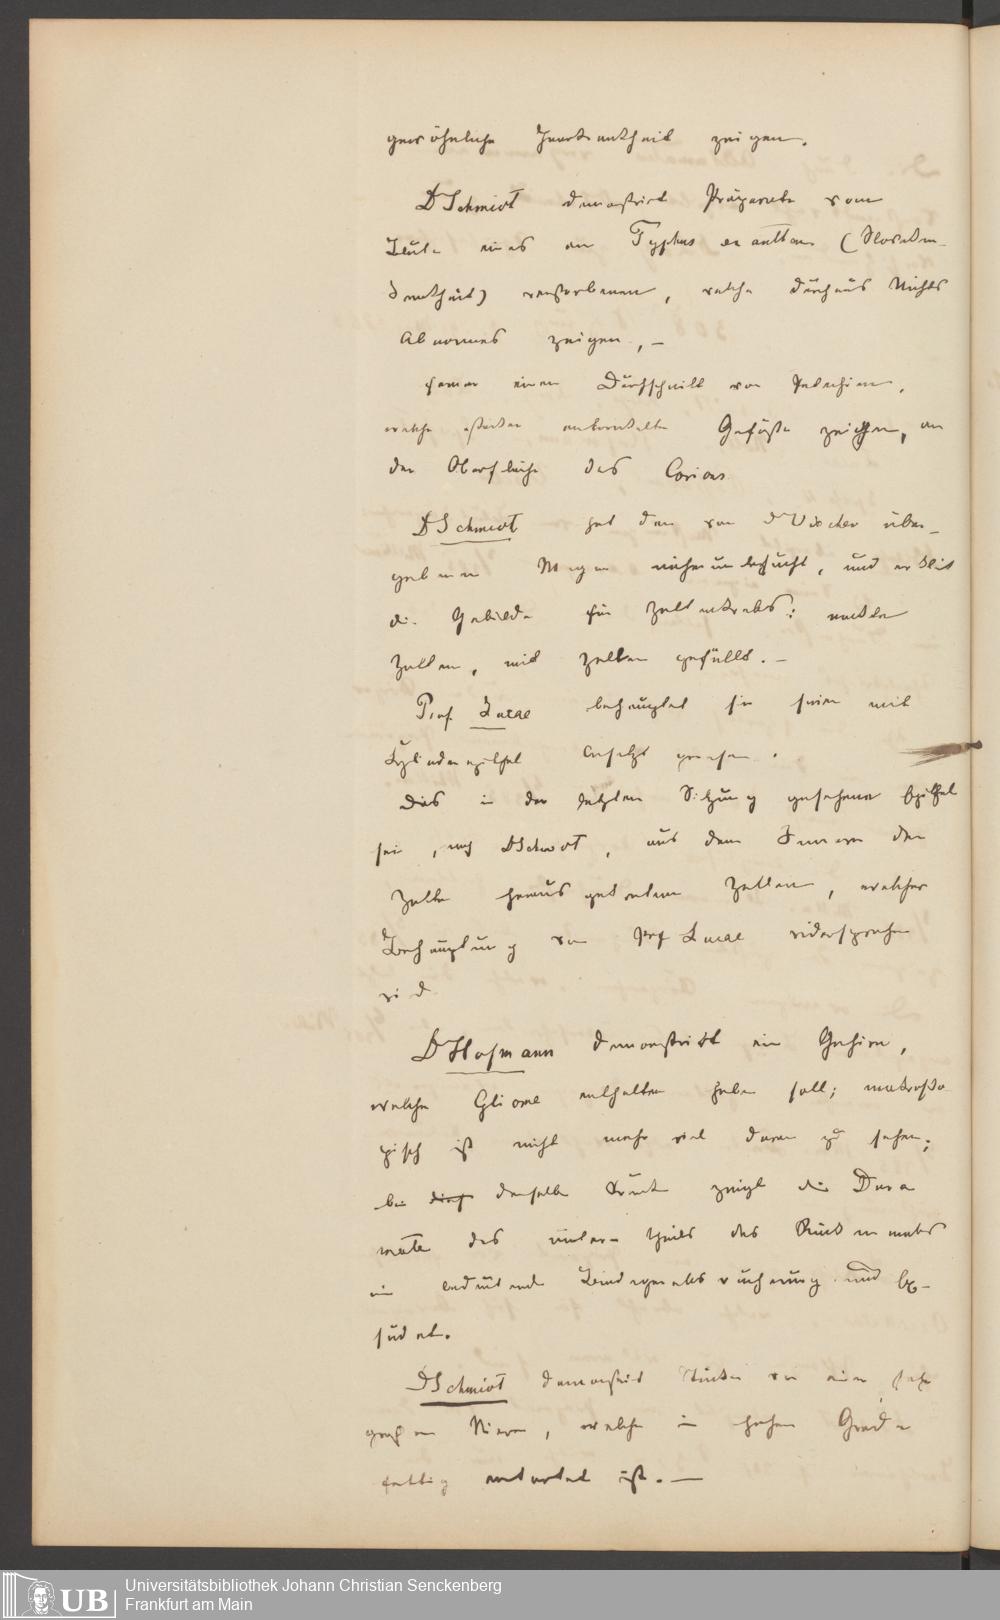 gewöhnliche Hautkrankheit zeigen.
Dr Schmidt demonstrirt Präparate vom
Blute eines an Typhus exanthem (Flecken-
krankheit) verstorbenen, welche durchaus Nichts
Abnormes zeigen, –
ferner einen Durchschnitt von Petechien,
welche starke entwickelte Gefäße zeigen, an
der Oberfläche des Corions
Dr Schmidt hat den von Dr Vöcker über-
gebenen Magen untersucht, und erklärt
die Gebilde für Zellenkrebs: nackte
Zellen, mit Zellen gefüllt. –
Prof Lucae behauptet sie seien mit
Cylinderepithel besetzt gewesen.
Das in der letzten Sitzung gesehene Epithel
sei, nach Dr Schmidt, aus dem Innern der
Zelle herausgetretene Zellen, welcher
Behauptung von Prof Lucae widersprochen
wird
Dr Hofmann demonstrirt ein Gehirn,
welches Gliome enthalten haben soll; makrosko-
pisch ist nicht mehr viel davon zu sehen;
bei derselben Kranken zeigt die Dura
mater des unteren Theils des Rückenmarks
eine bedeutende Bindegewebswucherung und Ex-
sudat.
Dr Schmidt demonstrirt Stücke von einer sehr
großen Niere, welche in hohem Grade
fettig entartet ist. —
UB Universitätsbibliothek Johann Christian Senckenberg
Frankfurt am Main